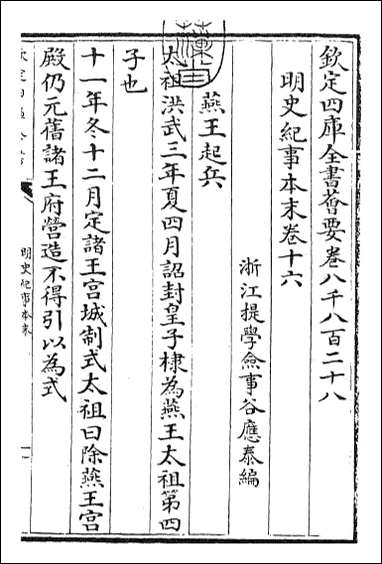 欽定四庫全書薈要卷八千八百二十八
明史紀事本末卷十六
浙江提學僉事谷應泰編
燕王起兵
太祖洪武三年夏四月詔封皇子棣為燕王太祖第四
子也
十一年冬十二月定諸王宫城制式太祖曰除燕王宫
殿仍元舊諸王府營造不得引以為式
明史紀事本末